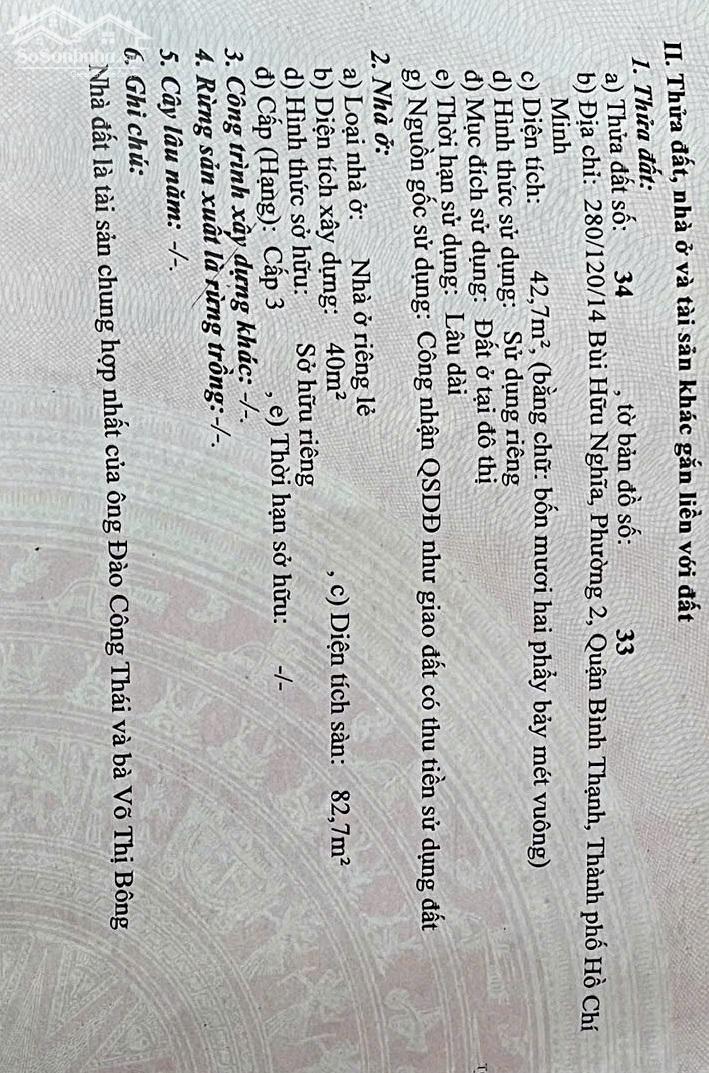 II. Thửa đất, nhà ở và tài sản khác gắn liền với đất
1. Thửa đất:
a) Thửa đất số: 34 , tờ bản đồ số: 33
b) Địa chỉ: 280/120/14 Bùi Hữu Nghĩa, Phường 2, Quận Bình Thạnh, Thành phố Hồ Chí
Minh
c) Diện tích: 42,7m², (bằng chữ: bốn mươi hai phẩy bảy mét vuông)
d) Hình thức sử dụng: Sử dụng riêng
đ) Mục đích sử dụng: Đất ở tại đô thị
e) Thời hạn sử dụng: Lâu dài
g) Nguồn gốc sử dụng: Công nhận QSDĐ như giao đất có thu tiền sử dụng đất
2. Nhà ở:
a) Loại nhà ở: Nhà ở riêng lẻ
b) Diện tích xây dựng: 40m² , c) Diện tích sàn: 82,7m²
d) Hình thức sở hữu: Sở hữu riêng
đ) Cấp (Hạng): Cấp 3 , e) Thời hạn sở hữu: -/-
3. Công trình xây dựng khác: -/-.
4. Rừng sản xuất là rừng trồng:-/-.
5. Cây lâu năm: -/-.
6. Ghi chú:
Nhà đất là tài sản chung hợp nhất của ông Đào Công Thái và bà Võ Thị Bông